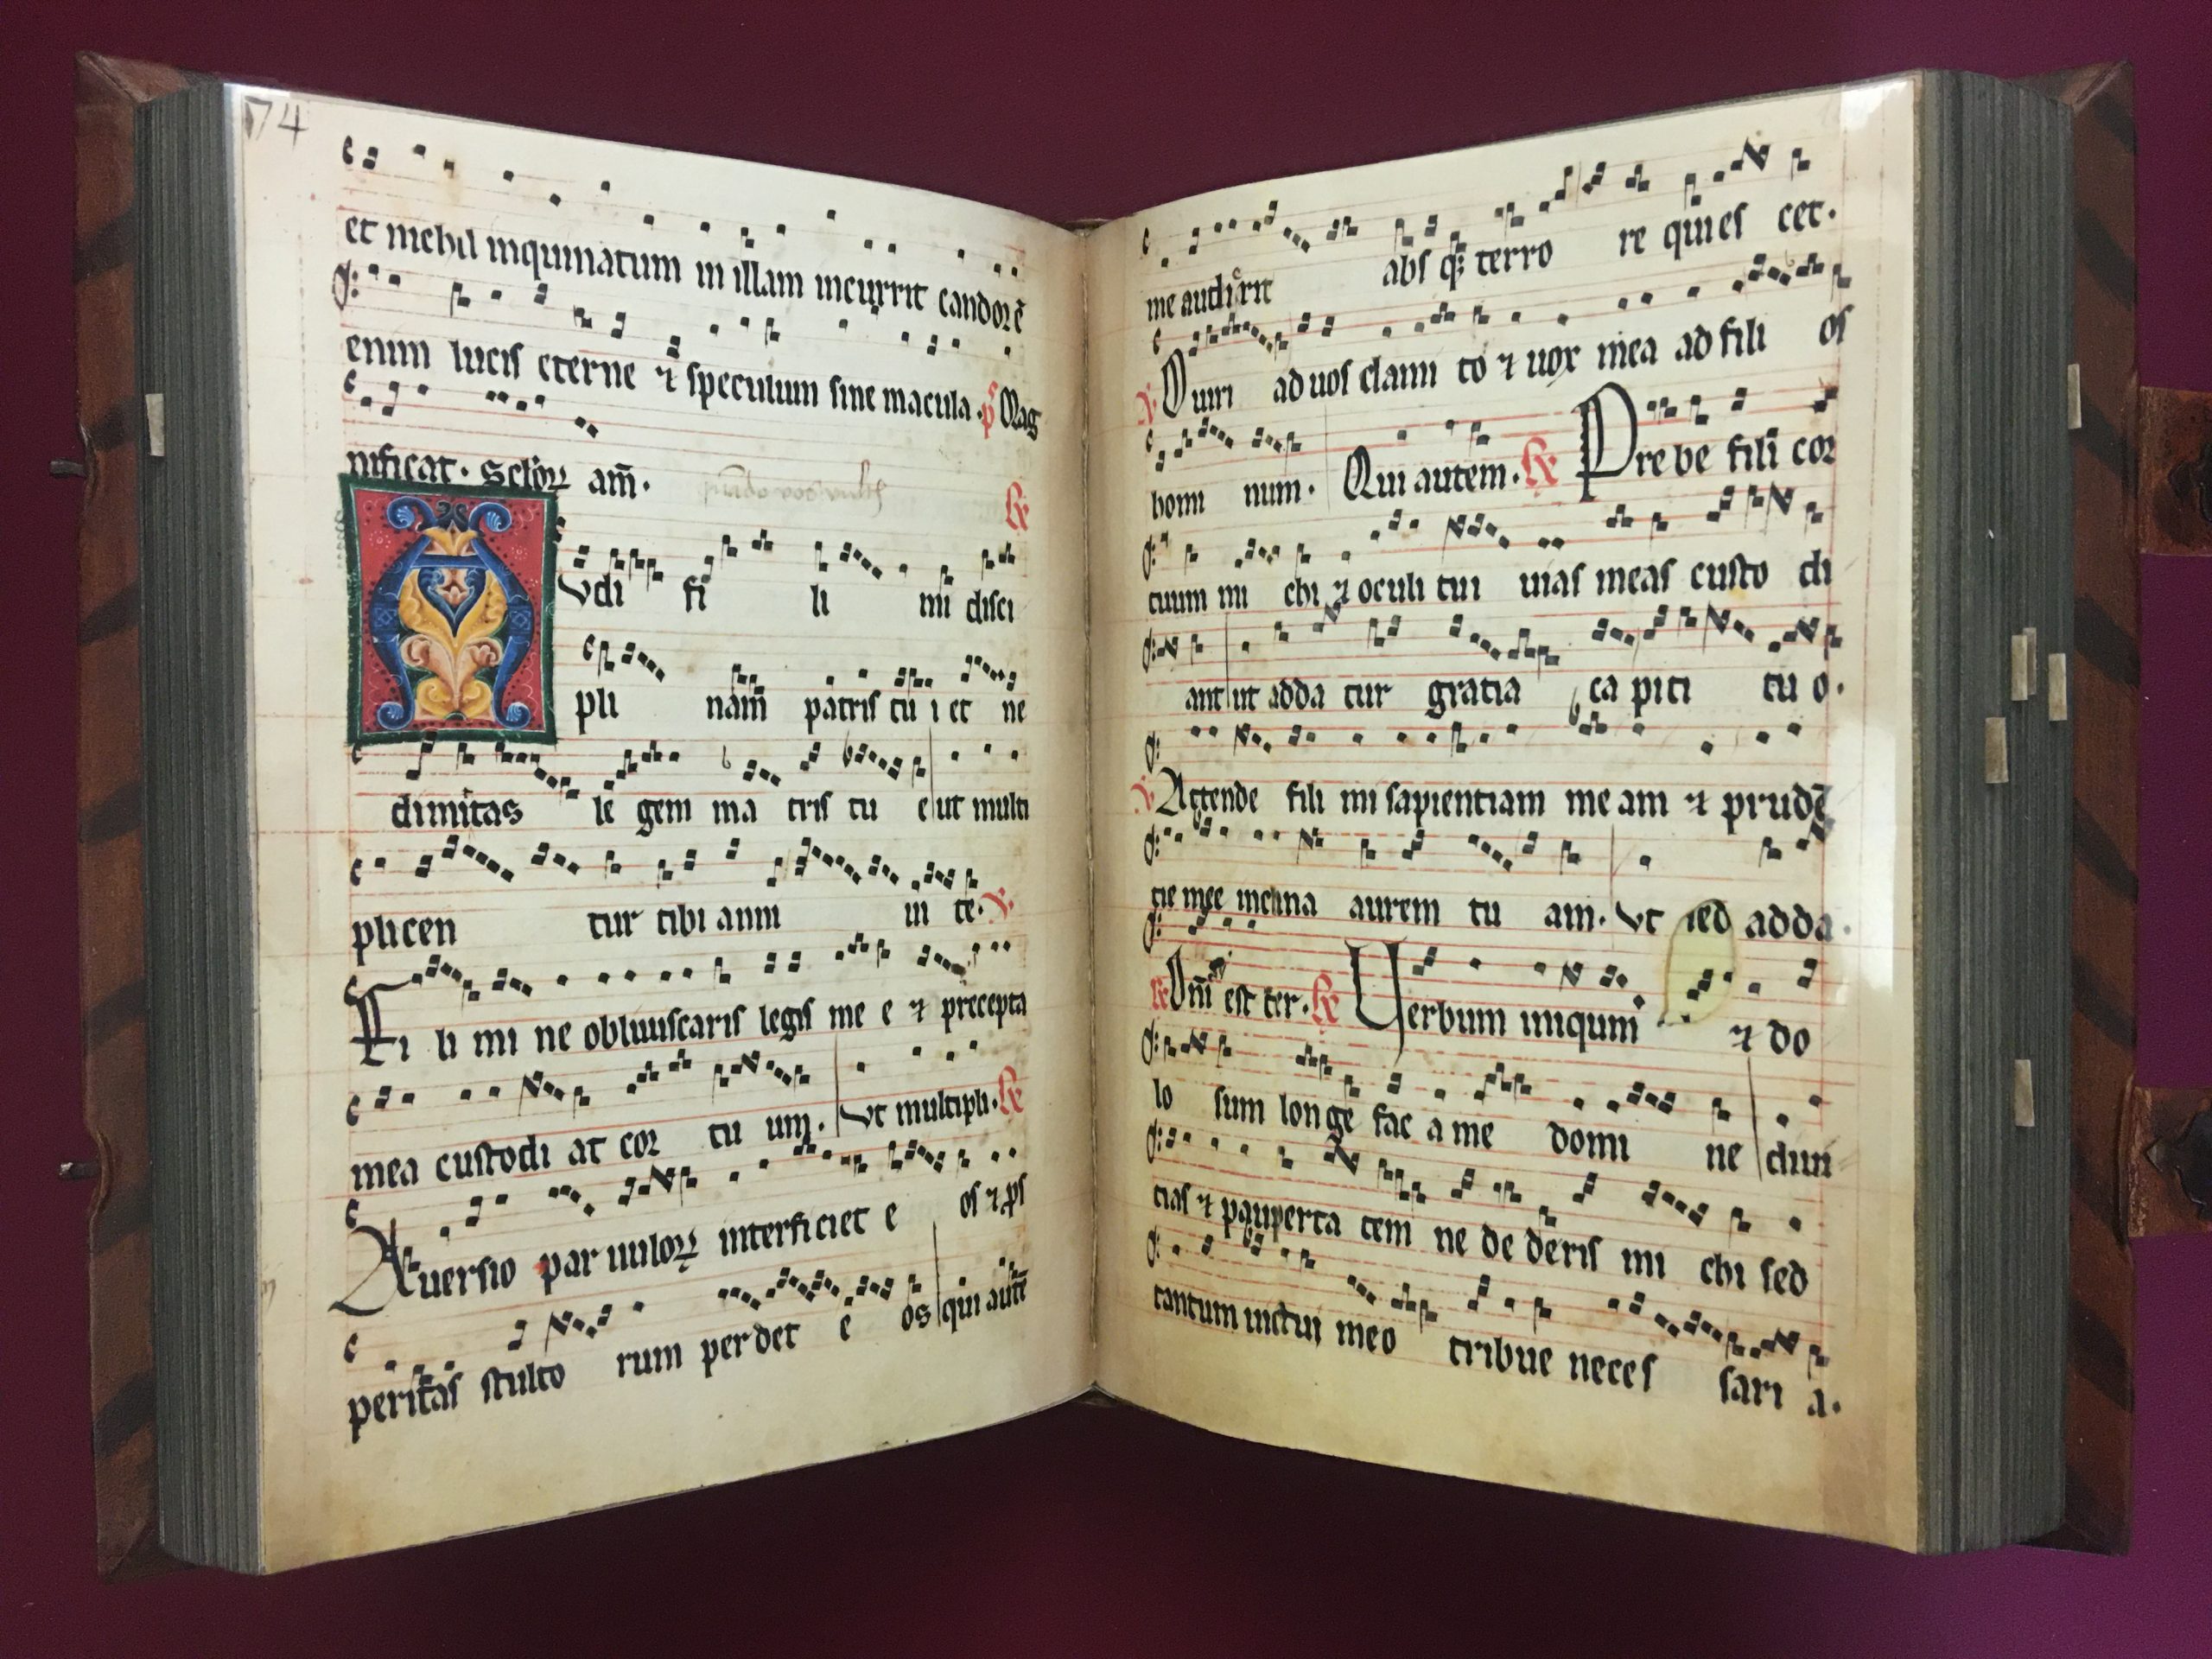 74
et nichil inquinatum in illam incurrit candorē
enim lucis eterne ⁊ speculum sine macula. p̄s Mag
nificat. Sclorꝝ am̄.
℟
Avdi fi li mi disci
pli nam̄ patris tu i et ne
dimitas le gem ma tris tu e ut multi
plicen tur tibi anni in te. ℣
Fi li mi ne obliuiscaris legis me e ⁊ precepta
mea custodi at cor tu um. Vt multipli. ℟
Auersio par uulorꝝ interficiet e os ⁊ ꝓs
peritas stulto rum perdet e os qui autē
me audierit abs qꝫ terro re quies cet.
℣ O uiri ad uos clami to ⁊ uox mea ad fili os
homi num. Qui autem. ℟ Prebe fili cor
tuum mi chi ⁊ oculi tui uias meas custo di
ant ut adda tur gratia ca piti tu o.
℣ Attende fili mi sapientiam me am ⁊ prudē
tie mee inclina aurem tu am. Vt adda.
est ter. ℟ Uerbum iniqum ⁊ do
lo sum longe fac a me domi ne diui
tias ⁊ pauperta tem ne de deris mi chi sed
tantum uictui meo tribue neces sari a.